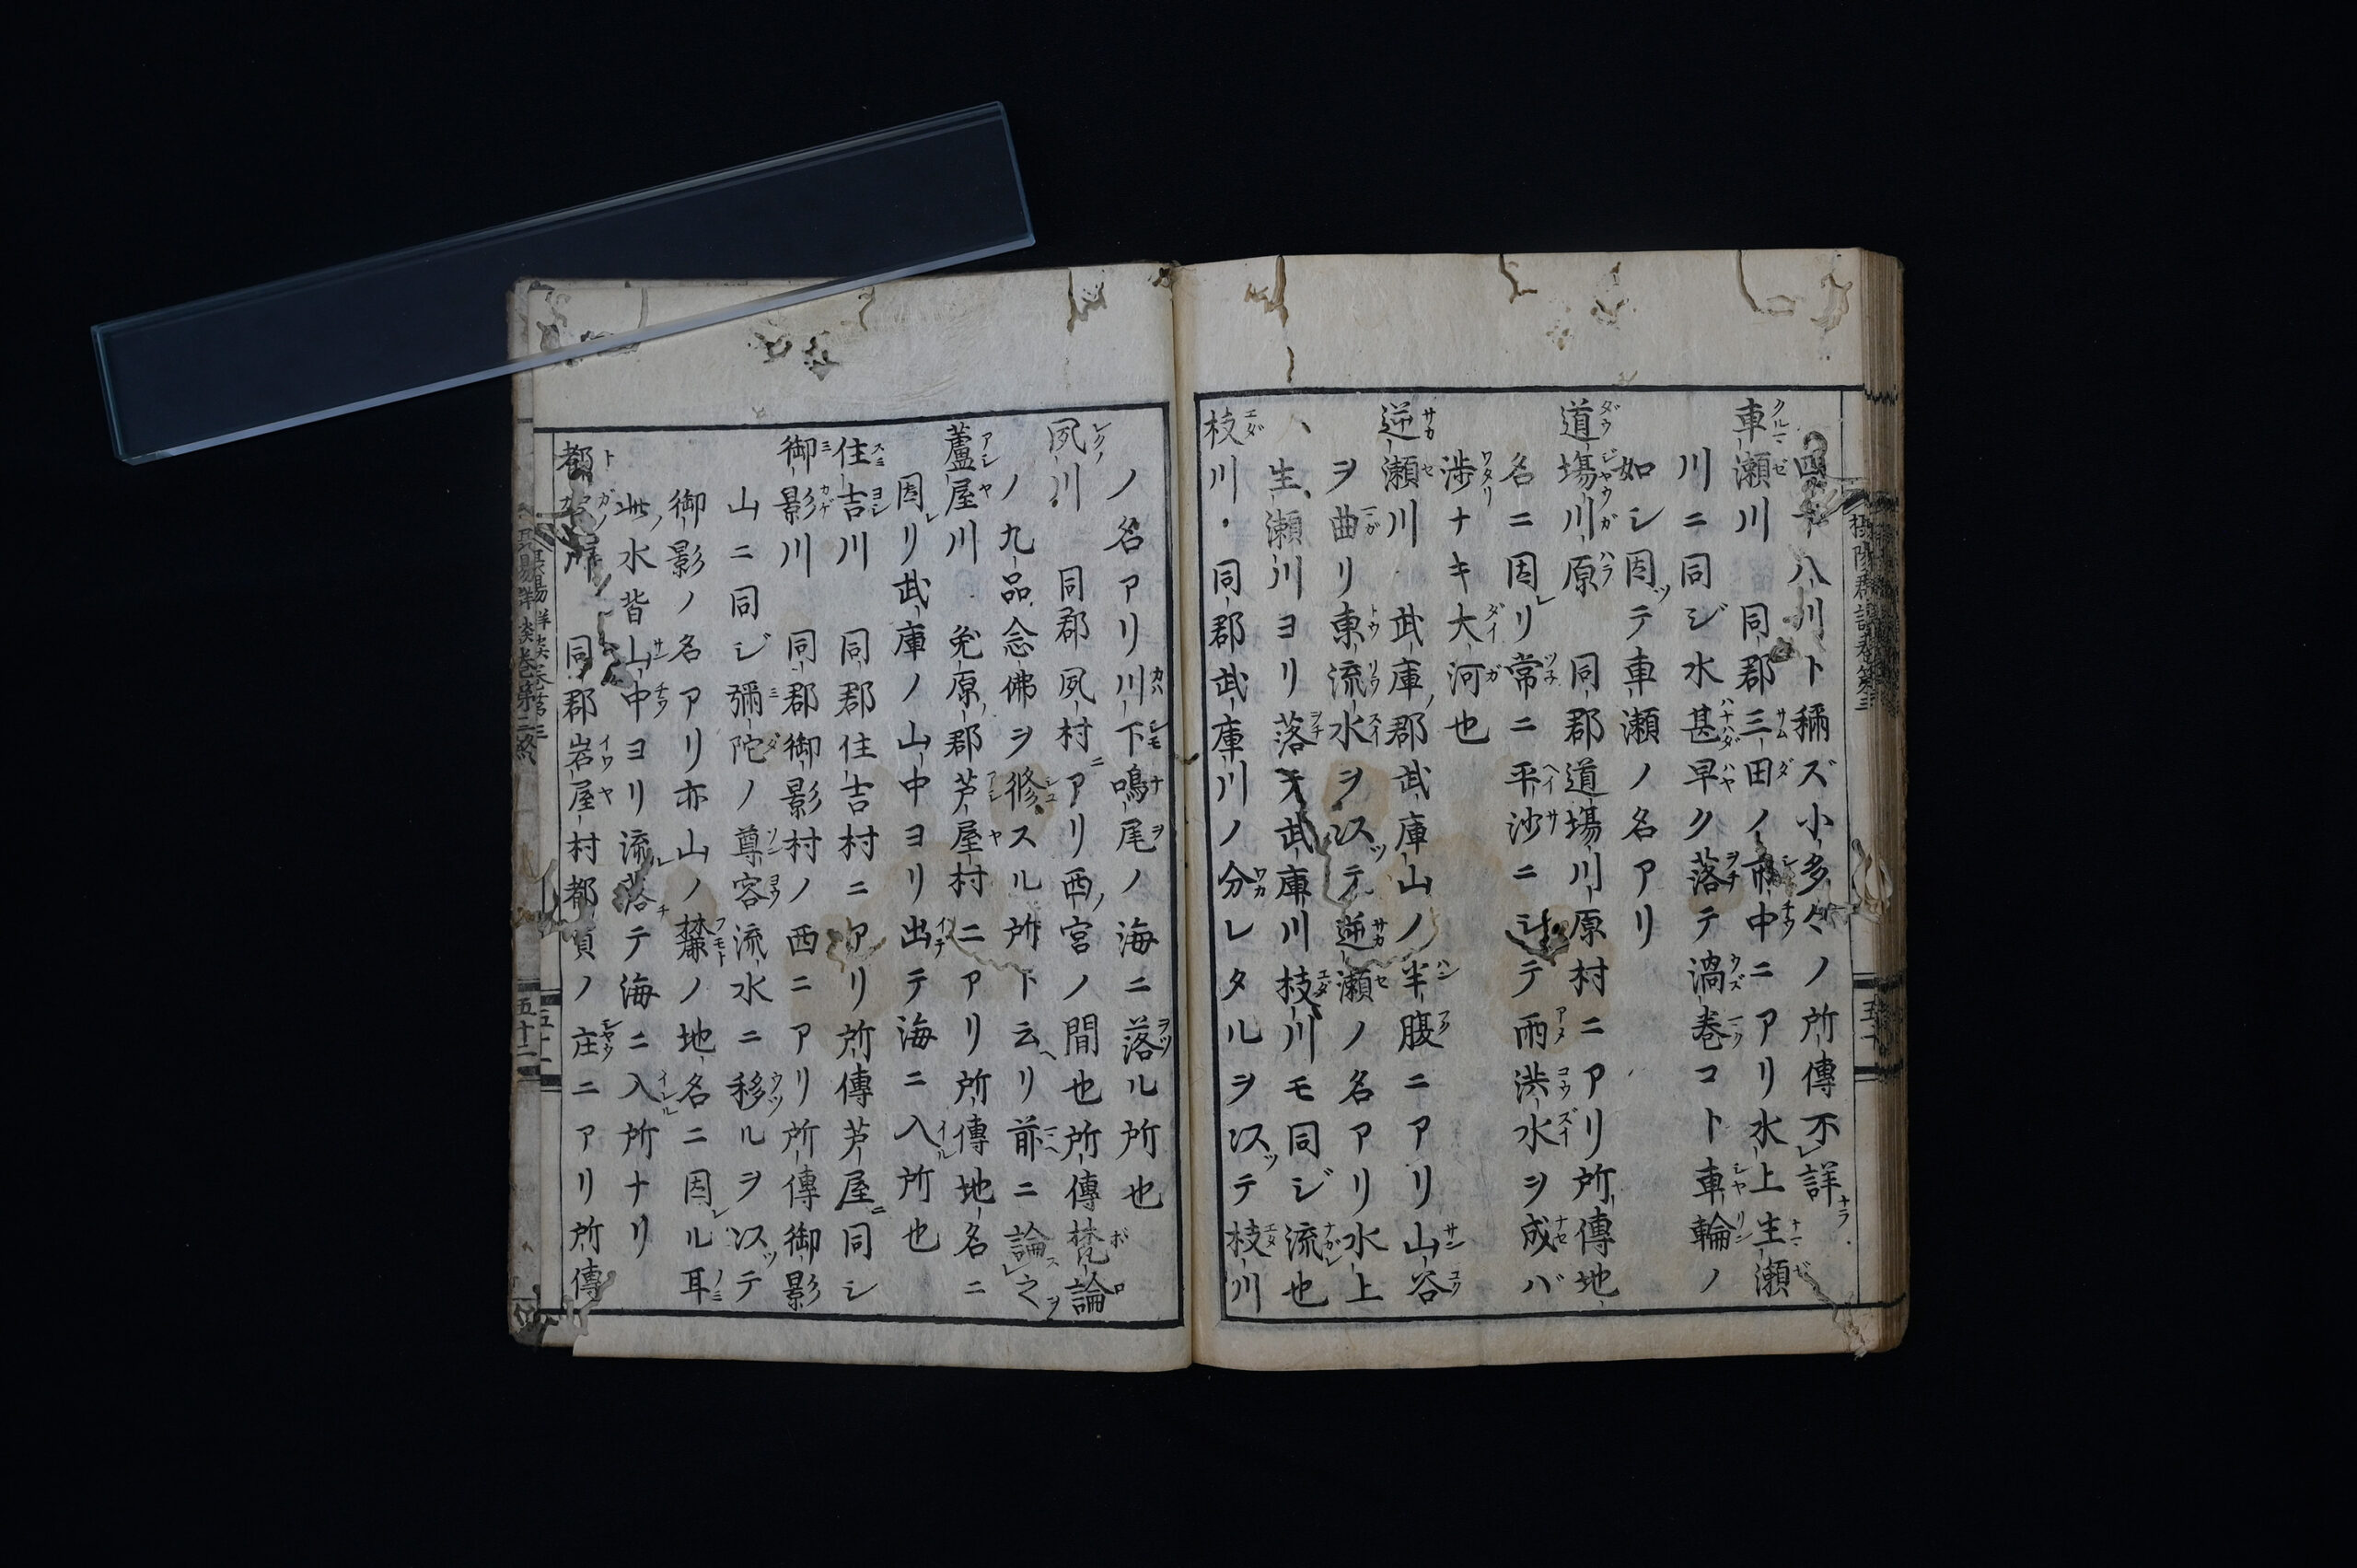 四十八川ト稱ズ小多々ノ所傳不詳ナラ
車瀬川 同郡三田ノ市中ニアリ水上生瀬
川ニ同ジ水甚早ク落テ渦巻コト車輪ノ
如シ因テ車瀬ノ名アリ
道塲川原 同郡道塲川原村ニアリ所傳地
名ニ因リ常ニ平沙ニシテ雨洪水ヲ成バ
渉ナキ大河也
逆瀬川 武庫郡武庫山ノ半腹ニアリ山谷
ヲ曲リ東流水ヲ以テ逆瀬ノ名アリ水上
ハ生瀬川ヨリ落テ武庫川枝川モ同ジ流也
枝川 同郡武庫川ノ分レタルヲ以テ枝川
ノ名アリ川下鳴尾ノ海ニ落ル所也
夙川 同郡夙村ニアリ西宮ノ間也所傳梵論
ノ九品念佛ヲ修スル所ト云リ前ニ論之
蘆屋川 兎原郡芦屋村ニアリ所傳地名ニ
因リ武庫ノ山中ヨリ出テ海ニ入所也
住吉川 同郡住吉村ニアリ所傳芦屋同シ
御影川 同郡御影村ノ西ニアリ所傳御影
山ニ同ジ彌陀ノ尊容流水ニ移ルヲ以テ
御影ノ名アリ亦山ノ麓ノ地名ニ因ル耳
此水皆山中ヨリ流落テ海ニ入所ナリ
都賀川 同郡岩屋村都賀ノ庄ニアリ所傳
五十二